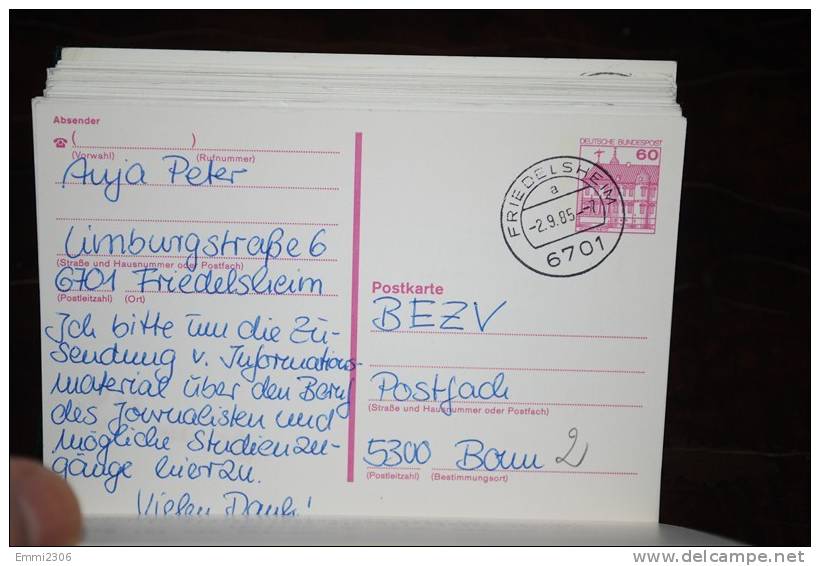 Absender
( )
(Vorwahl) (Rufnummer)
Anja Peter
Limburgstraße 6
(Straße und Hausnummer oder Postfach)
6701 Friedelsheim
(Postleitzahl) (Ort)
Ich bitte um die Zu-
sendung v. Informations-
material über den Beruf
des Journalisten und
mögliche Studienzu-
gänge hierzu.
Vielen Dank!
DEUTSCHE BUNDESPOST
60
FRIEDELSHEIM
a
-2.9.85.--7
6701
Postkarte
BEZV
Postfach
(Straße und Hausnummer oder Postfach)
5300 Bonn 2
(Postleitzahl) (Bestimmungsort)
Emmi2306
delcampe.net